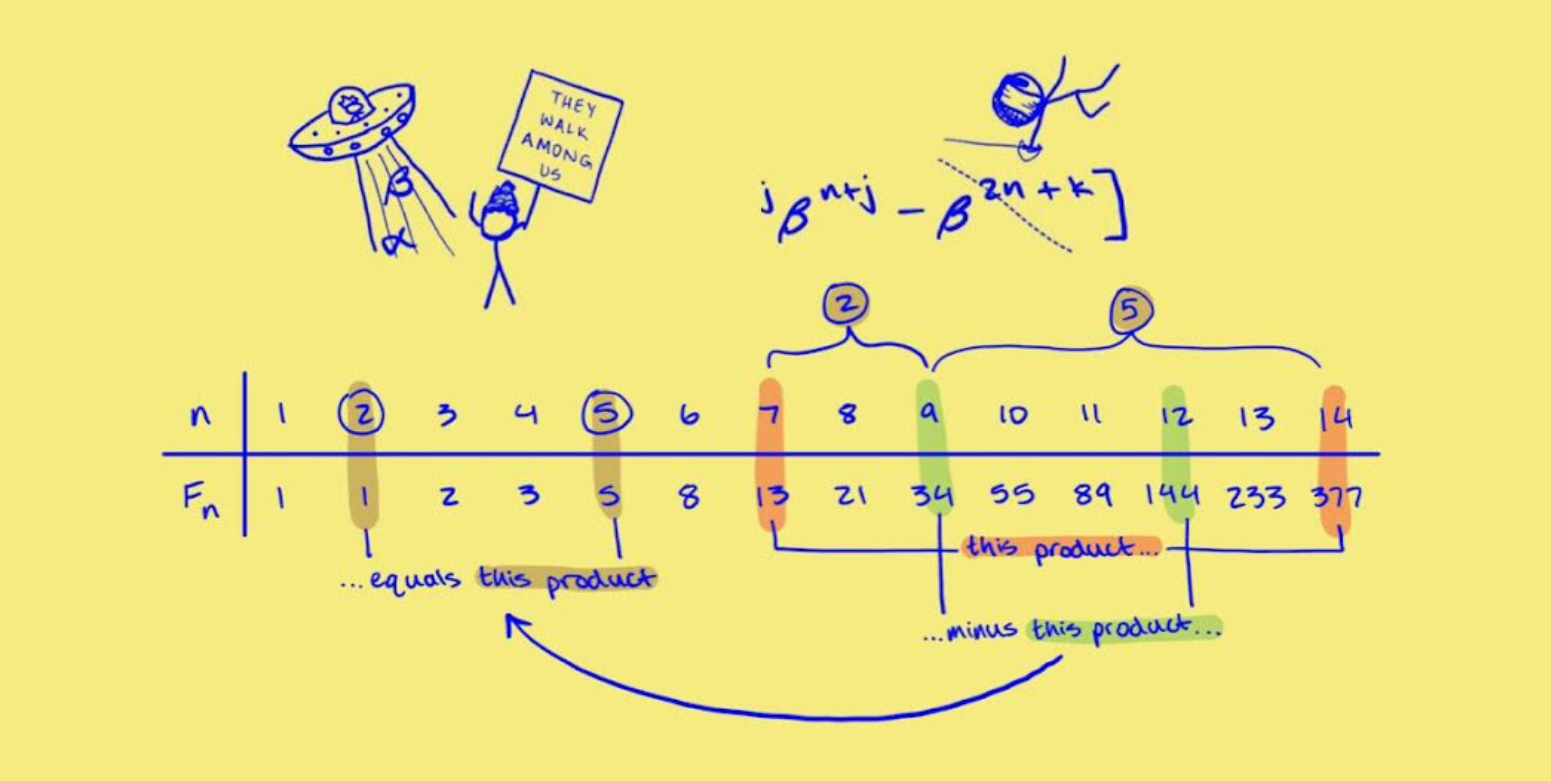 THEY
WALK
AMONG
US
β
α
jβ^{n+j} - β^{2n+k}]
2 5
n 1 2 3 4 5 6 7 8 9 10 11 12 13 14
F_n 1 1 2 3 5 8 13 21 34 55 89 144 233 377
this product...
...equals this product
...minus this product...